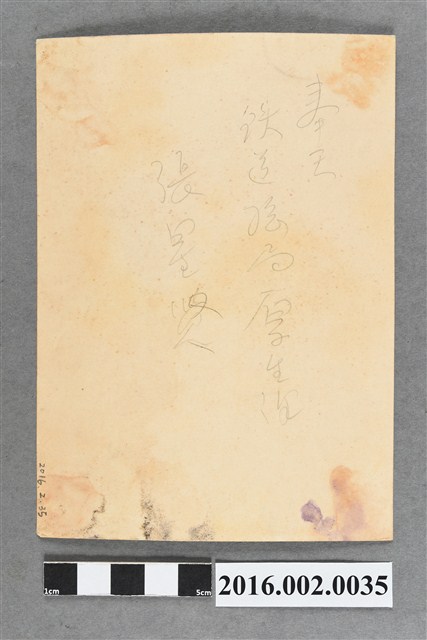 奉天
鉄道総局厚生課
張星賢
2016.2.35
1cm
5cm
2016.002.0035